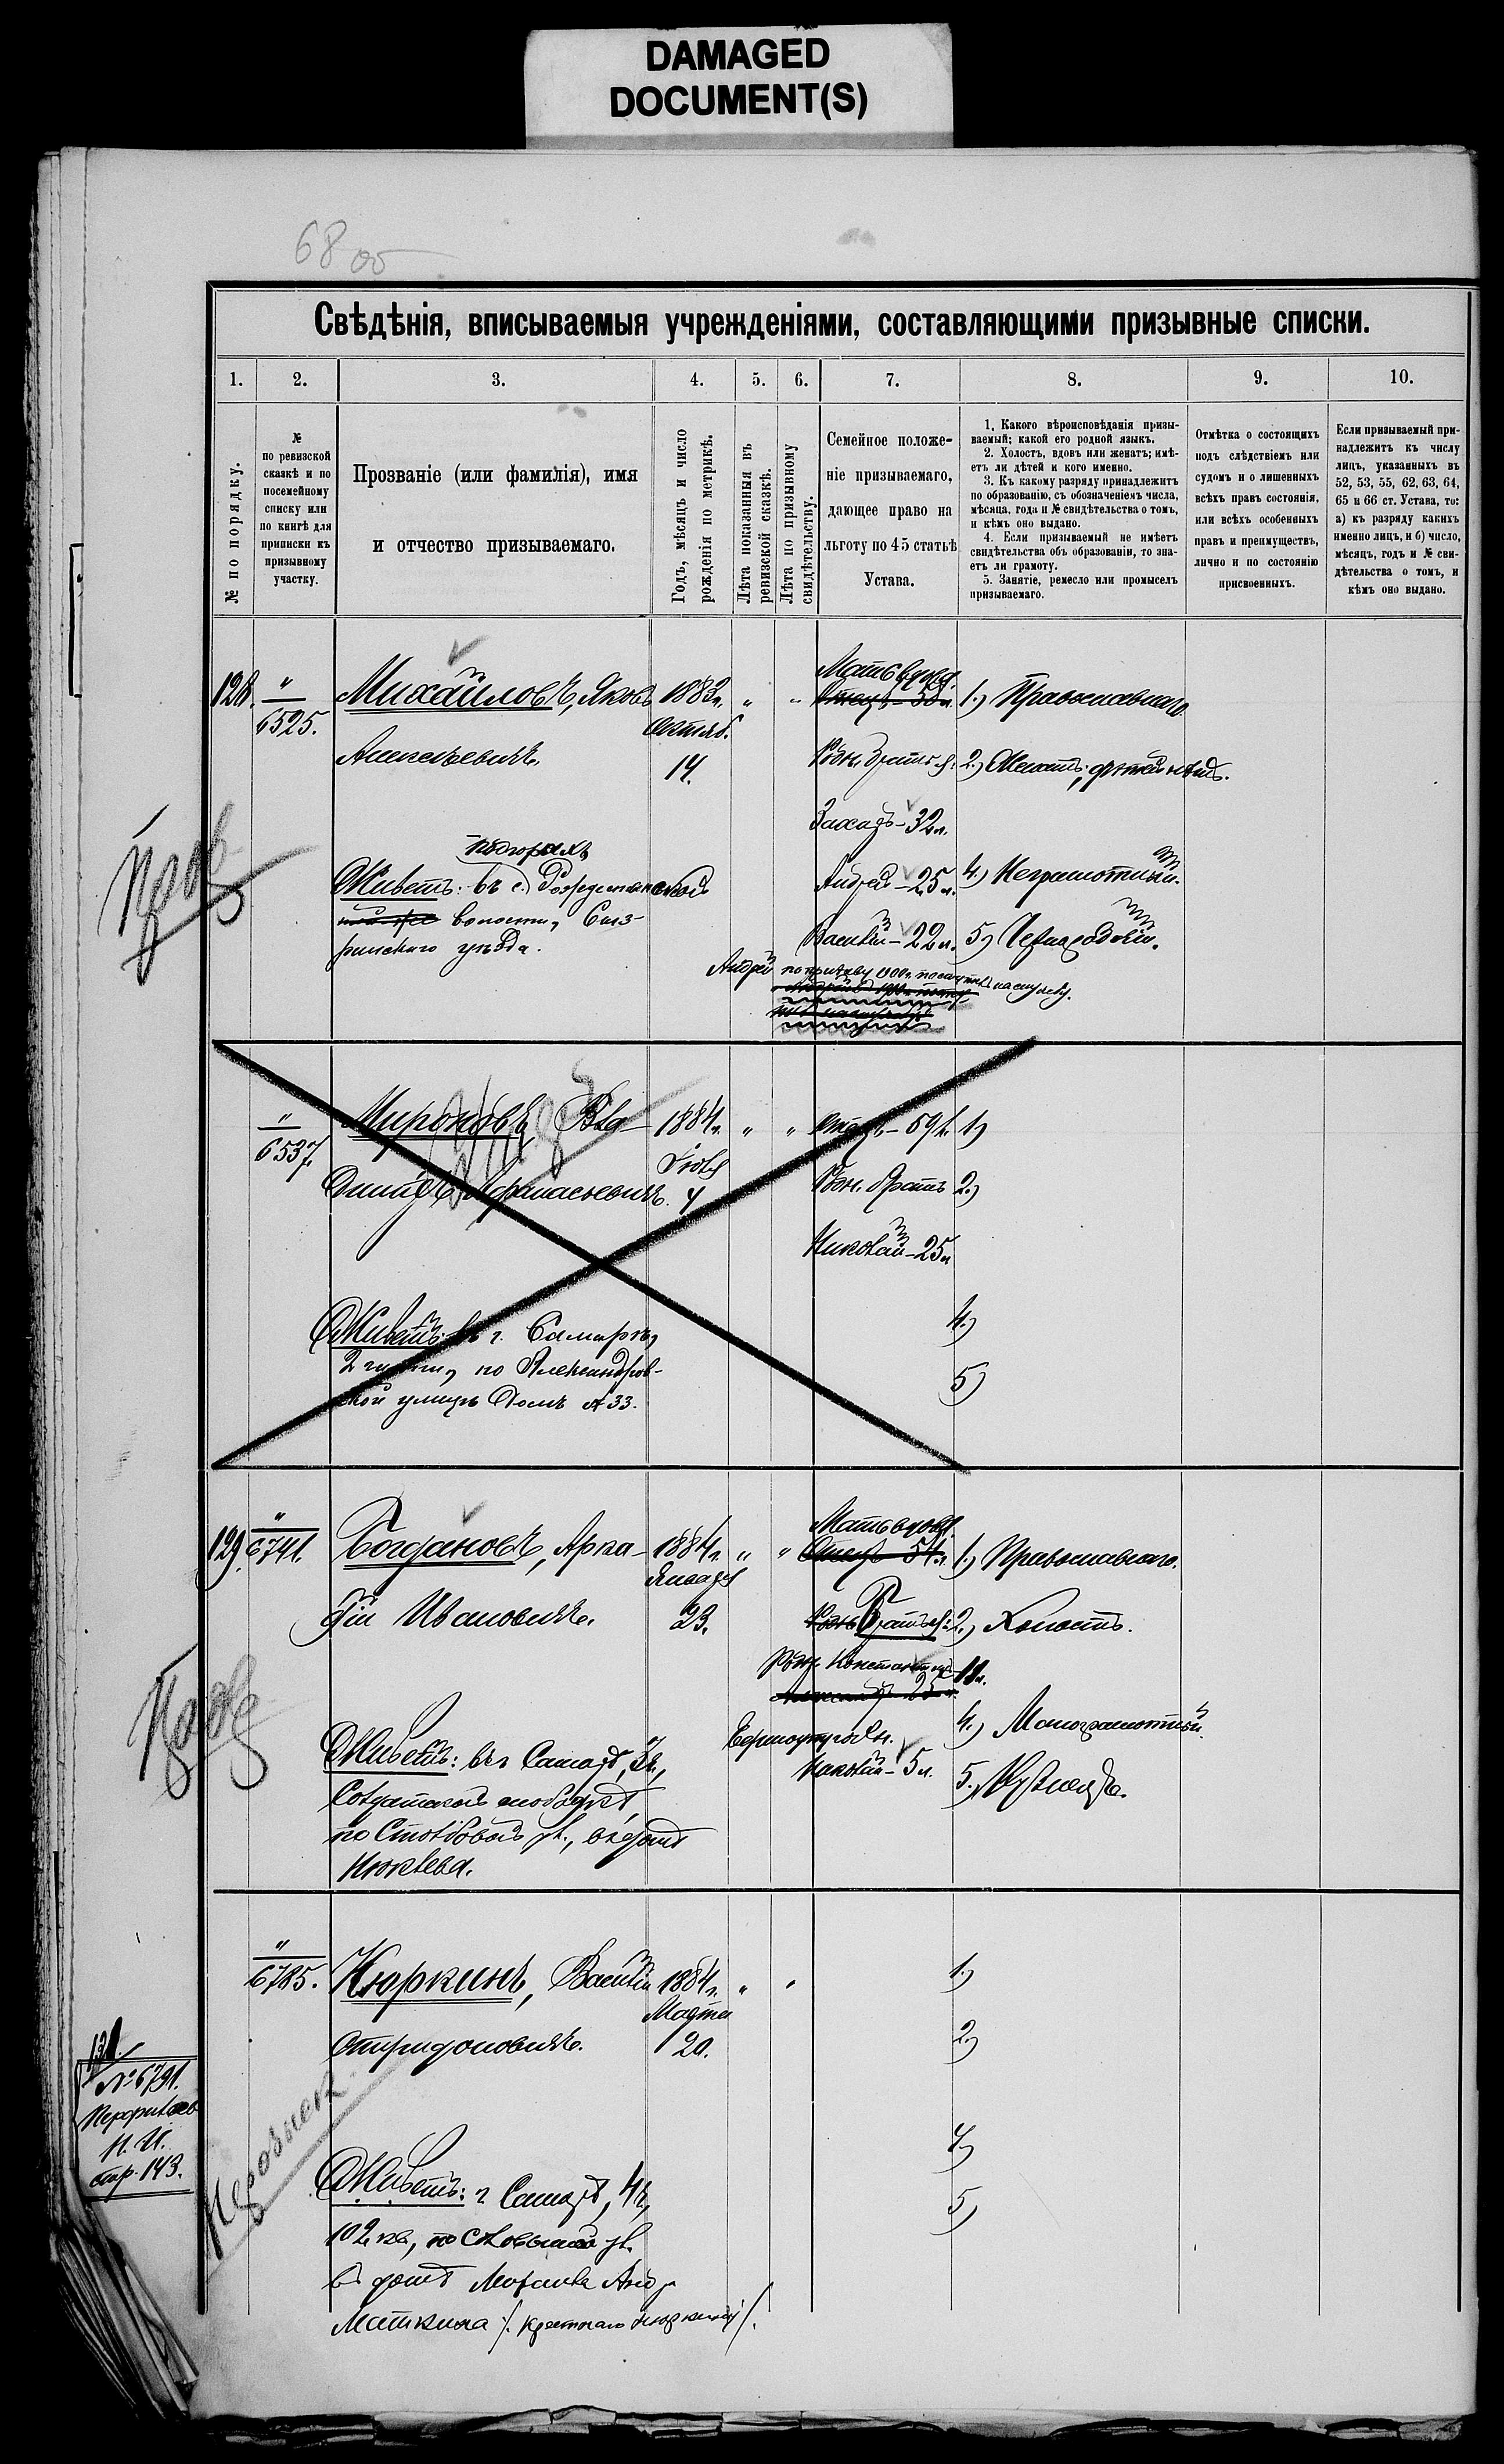 DAMAGED
DOCUMENT(S)
68 об
Свѣдѣнія, вписываемыя учрежденіями, составляющими призывные списки.
1. 2. 3. 4. 5. 6. 7. 8. 9. 10.
№ по порядку.
№
по ревизской
сказкѣ и по
посемейному
списку или
по книгѣ для
приписки къ
призывному
участку.
Прозваніе (или фамилія), имя
и отчество призываемаго.
Годъ, мѣсяцъ и число
рожденія по метрикѣ.
Лѣта показанныя въ
ревизской сказкѣ.
Лѣта по призывному
свидѣтельству.
Семейное положе-
ніе призываемаго,
дающее право на
льготу по 45 статьѣ
Устава.
1. Какого вѣроисповѣданія призы-
ваемый; какой его родной языкъ.
2. Холостъ, вдовъ или женатъ; имѣ-
етъ ли дѣтей и кого именно.
3. Къ какому разряду принадлежитъ
по образованію, съ обозначеніемъ числа,
мѣсяца, года и № свидѣтельства о томъ,
и кѣмъ оно выдано.
4. Если призываемый не имѣетъ
свидѣтельства объ образованіи, то зна-
етъ ли грамоту.
5. Занятіе, ремесло или промыселъ
призываемаго.
Отмѣтка о состоящихъ
подъ слѣдствіемъ или
судомъ и о лишенныхъ
всѣхъ правъ состоянія,
или всѣхъ особенныхъ
правъ и преимуществъ,
лично и по состоянію
присвоенныхъ.
Если призываемый при-
надлежитъ къ числу
лицъ, указанныхъ въ
52, 53, 55, 62, 63, 64,
65 и 66 ст. Устава, то:
а) къ разряду какихъ
именно лицъ, и б) число,
мѣсяцъ, годъ и № сви-
дѣтельства о томъ, и
кѣмъ оно выдано.
128. " 6525. Михайловъ, Яковъ 1883 г. " " Мать вдова.
Отецъ - 58 л. 1.) Православнаго
Алексѣевичъ. Октяб. 14. Родн. братья: 2.) Женатъ; дѣтей нѣтъ.
Захаръ - 32 л.
Подгорахъ
Живетъ: въ с. Рождественской
волости, Сыз-
ранскаго уѣзда.
Андрей - 25 л. 4.) Неграмотный.
Василій - 22 л. 5.) Чернорабочій.
Андрей по призыву 1900 г. поступилъ на службу.
" 6537. Мироновъ, Вла- 1884 г. " " Отецъ - 59 л. 1)
диміръ Афанасьевичъ. Іюля 4 Родн. братъ 2.)
Николай - 25 л.
Живетъ: въ г. Самарѣ,
2 части, по Александров-
ской улицѣ домъ № 33.
4.)
5)
129. " 6741. Богдановъ, Арка- 1884 г. " " Мать вдова.
Отецъ - 54 л. 1.) Православнаго.
дій Ивановичъ. Января 23. Братья: 2.) Холостъ.
Родн. Константинъ 11 л.
25 л.
Николай - 5 л.
4.) Малограмотный.
5.) Кузнецъ.
Живетъ: въ г. Самарѣ, 3 ч.,
Солдатской слободкѣ,
по Столбовой ул., въ домѣ
" 6785. Кюркинъ, Василій 1884 г. " " 1.)
Спиридоновичъ. Марта 20. 2.)
Живетъ: г. Самарѣ, 4 ч.,
102 кв,
въ домѣ
4.)
5)
131.
№ 6791.
Перфильев
П. И.
стр. 143.